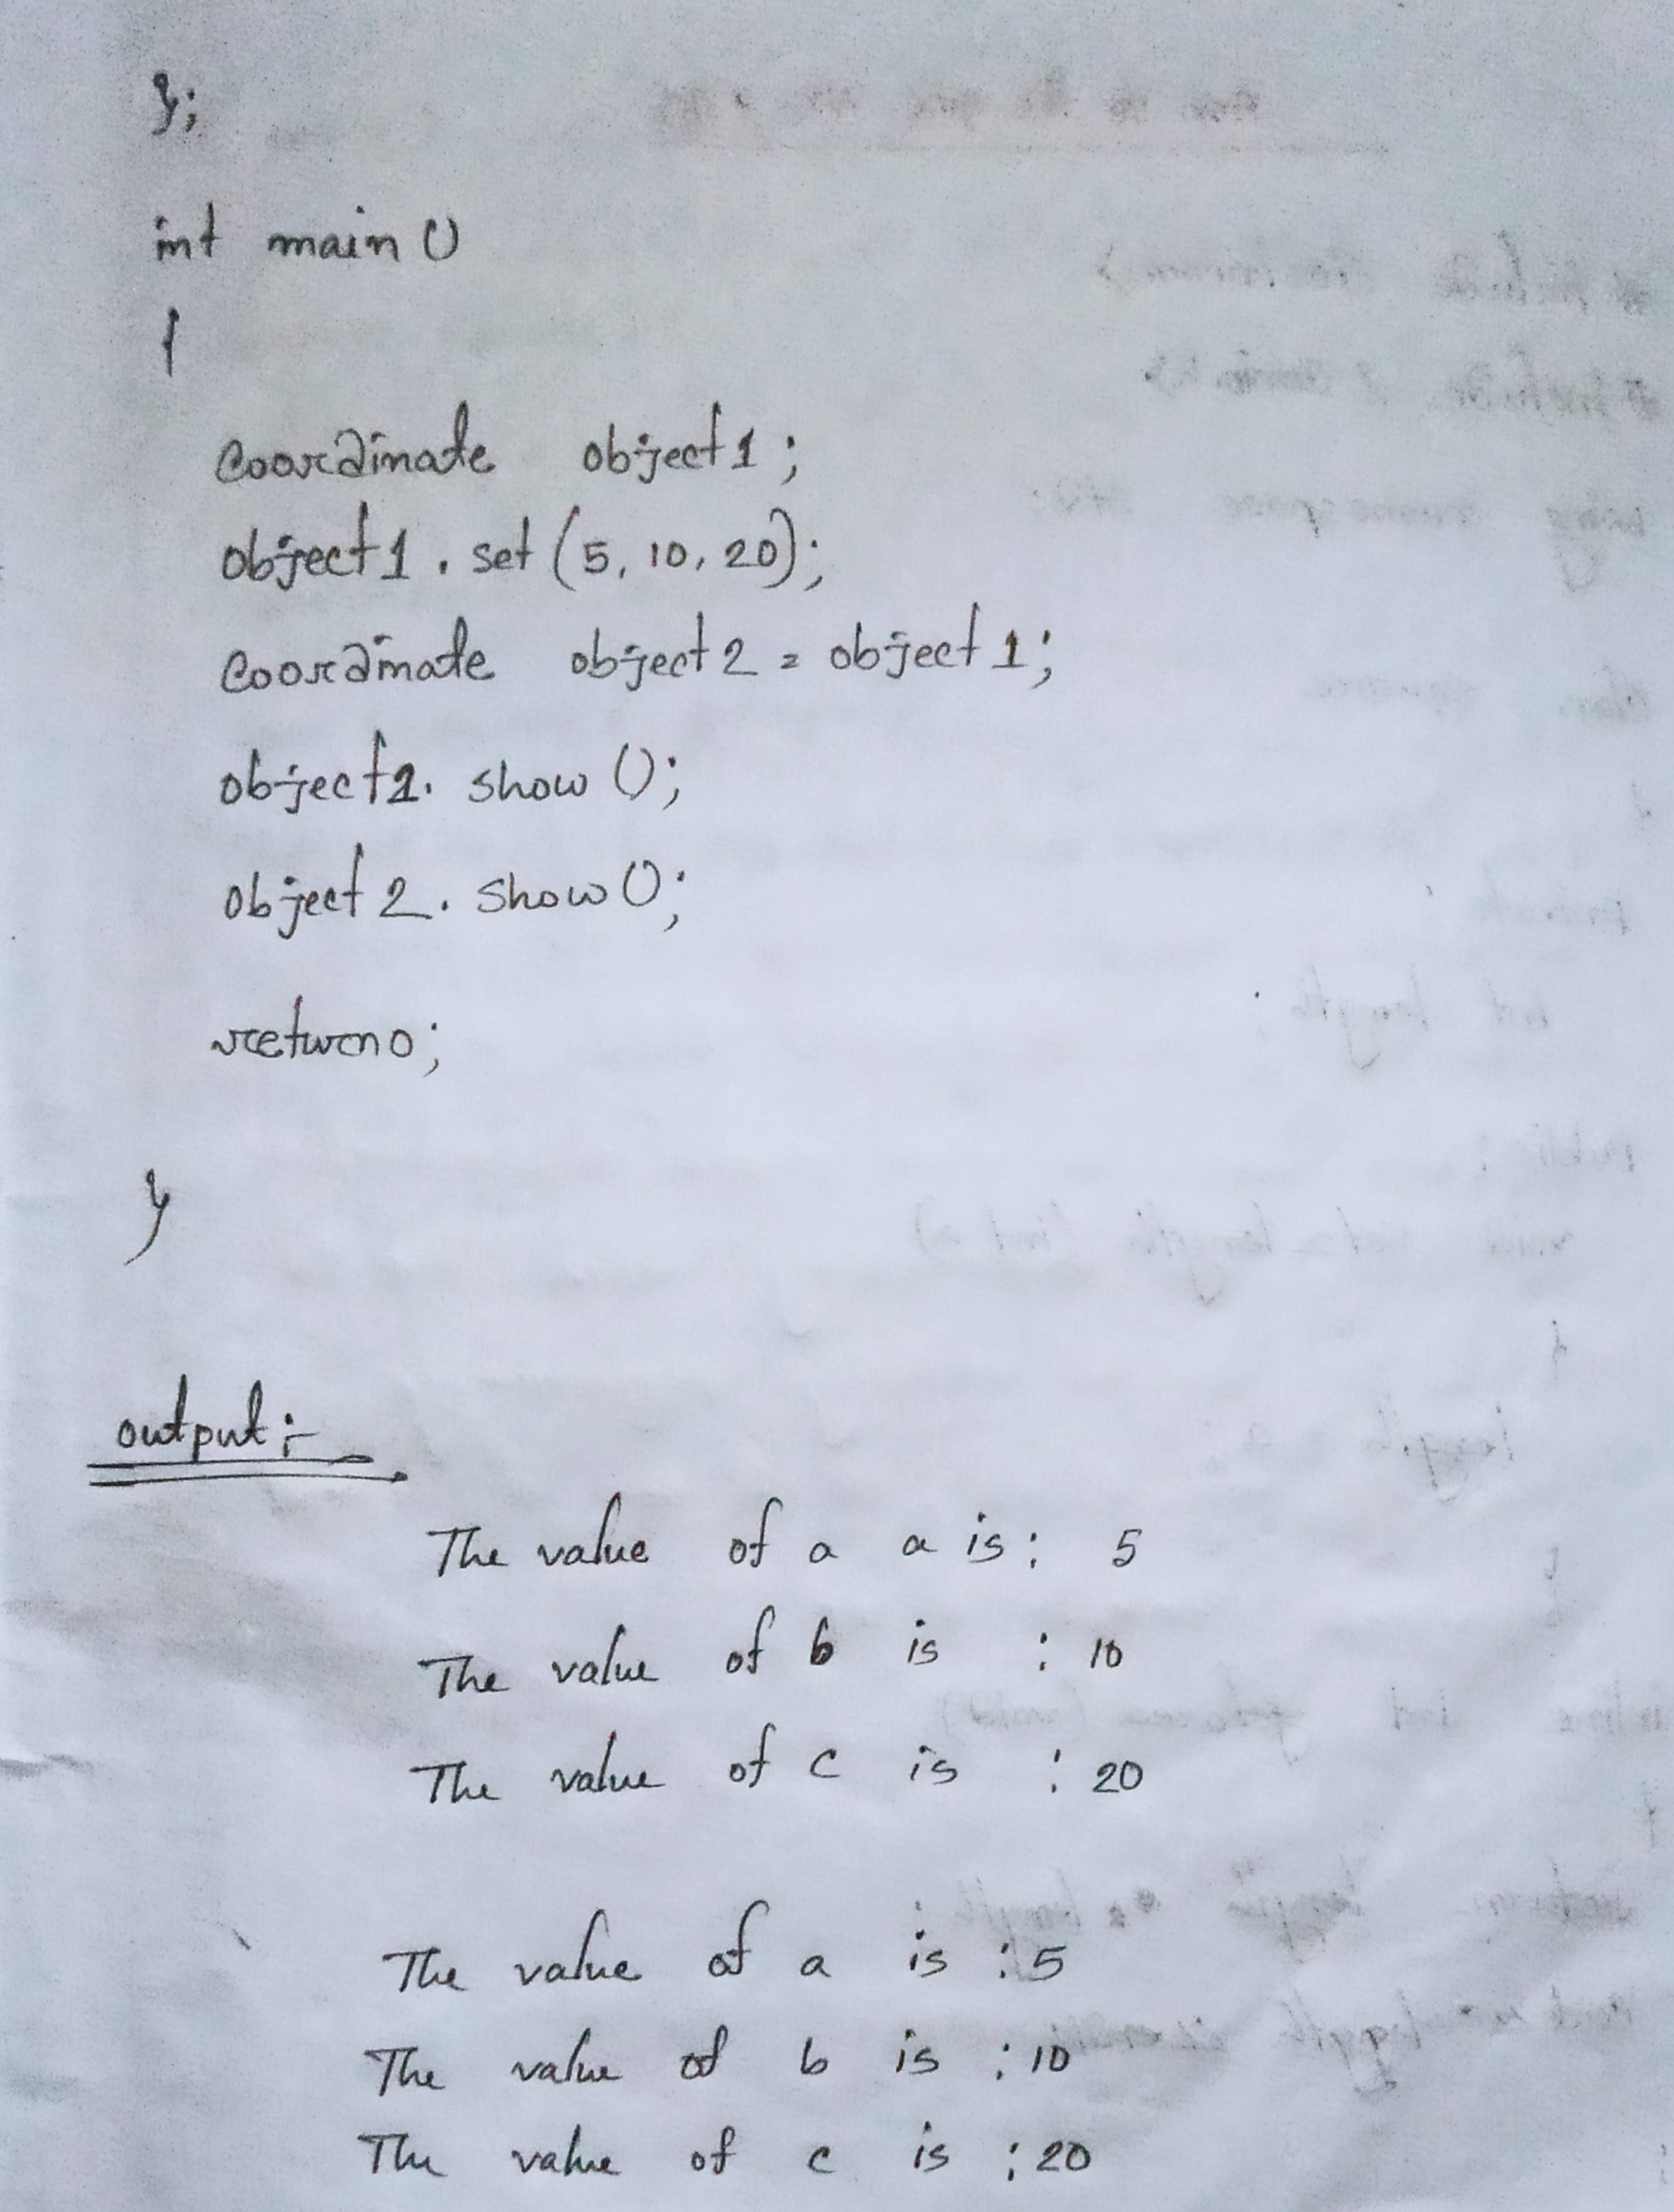 };
int main ()
{
coordinate object1;
object1. set (5, 10, 20);
coordinate object2 = object1;
object1. show ();
object2. show ();
return 0;
}
output:-
The value of a a is: 5
The value of b is : 10
The value of c is : 20
The value of a is : 5
The value of b is : 10
The value of c is : 20